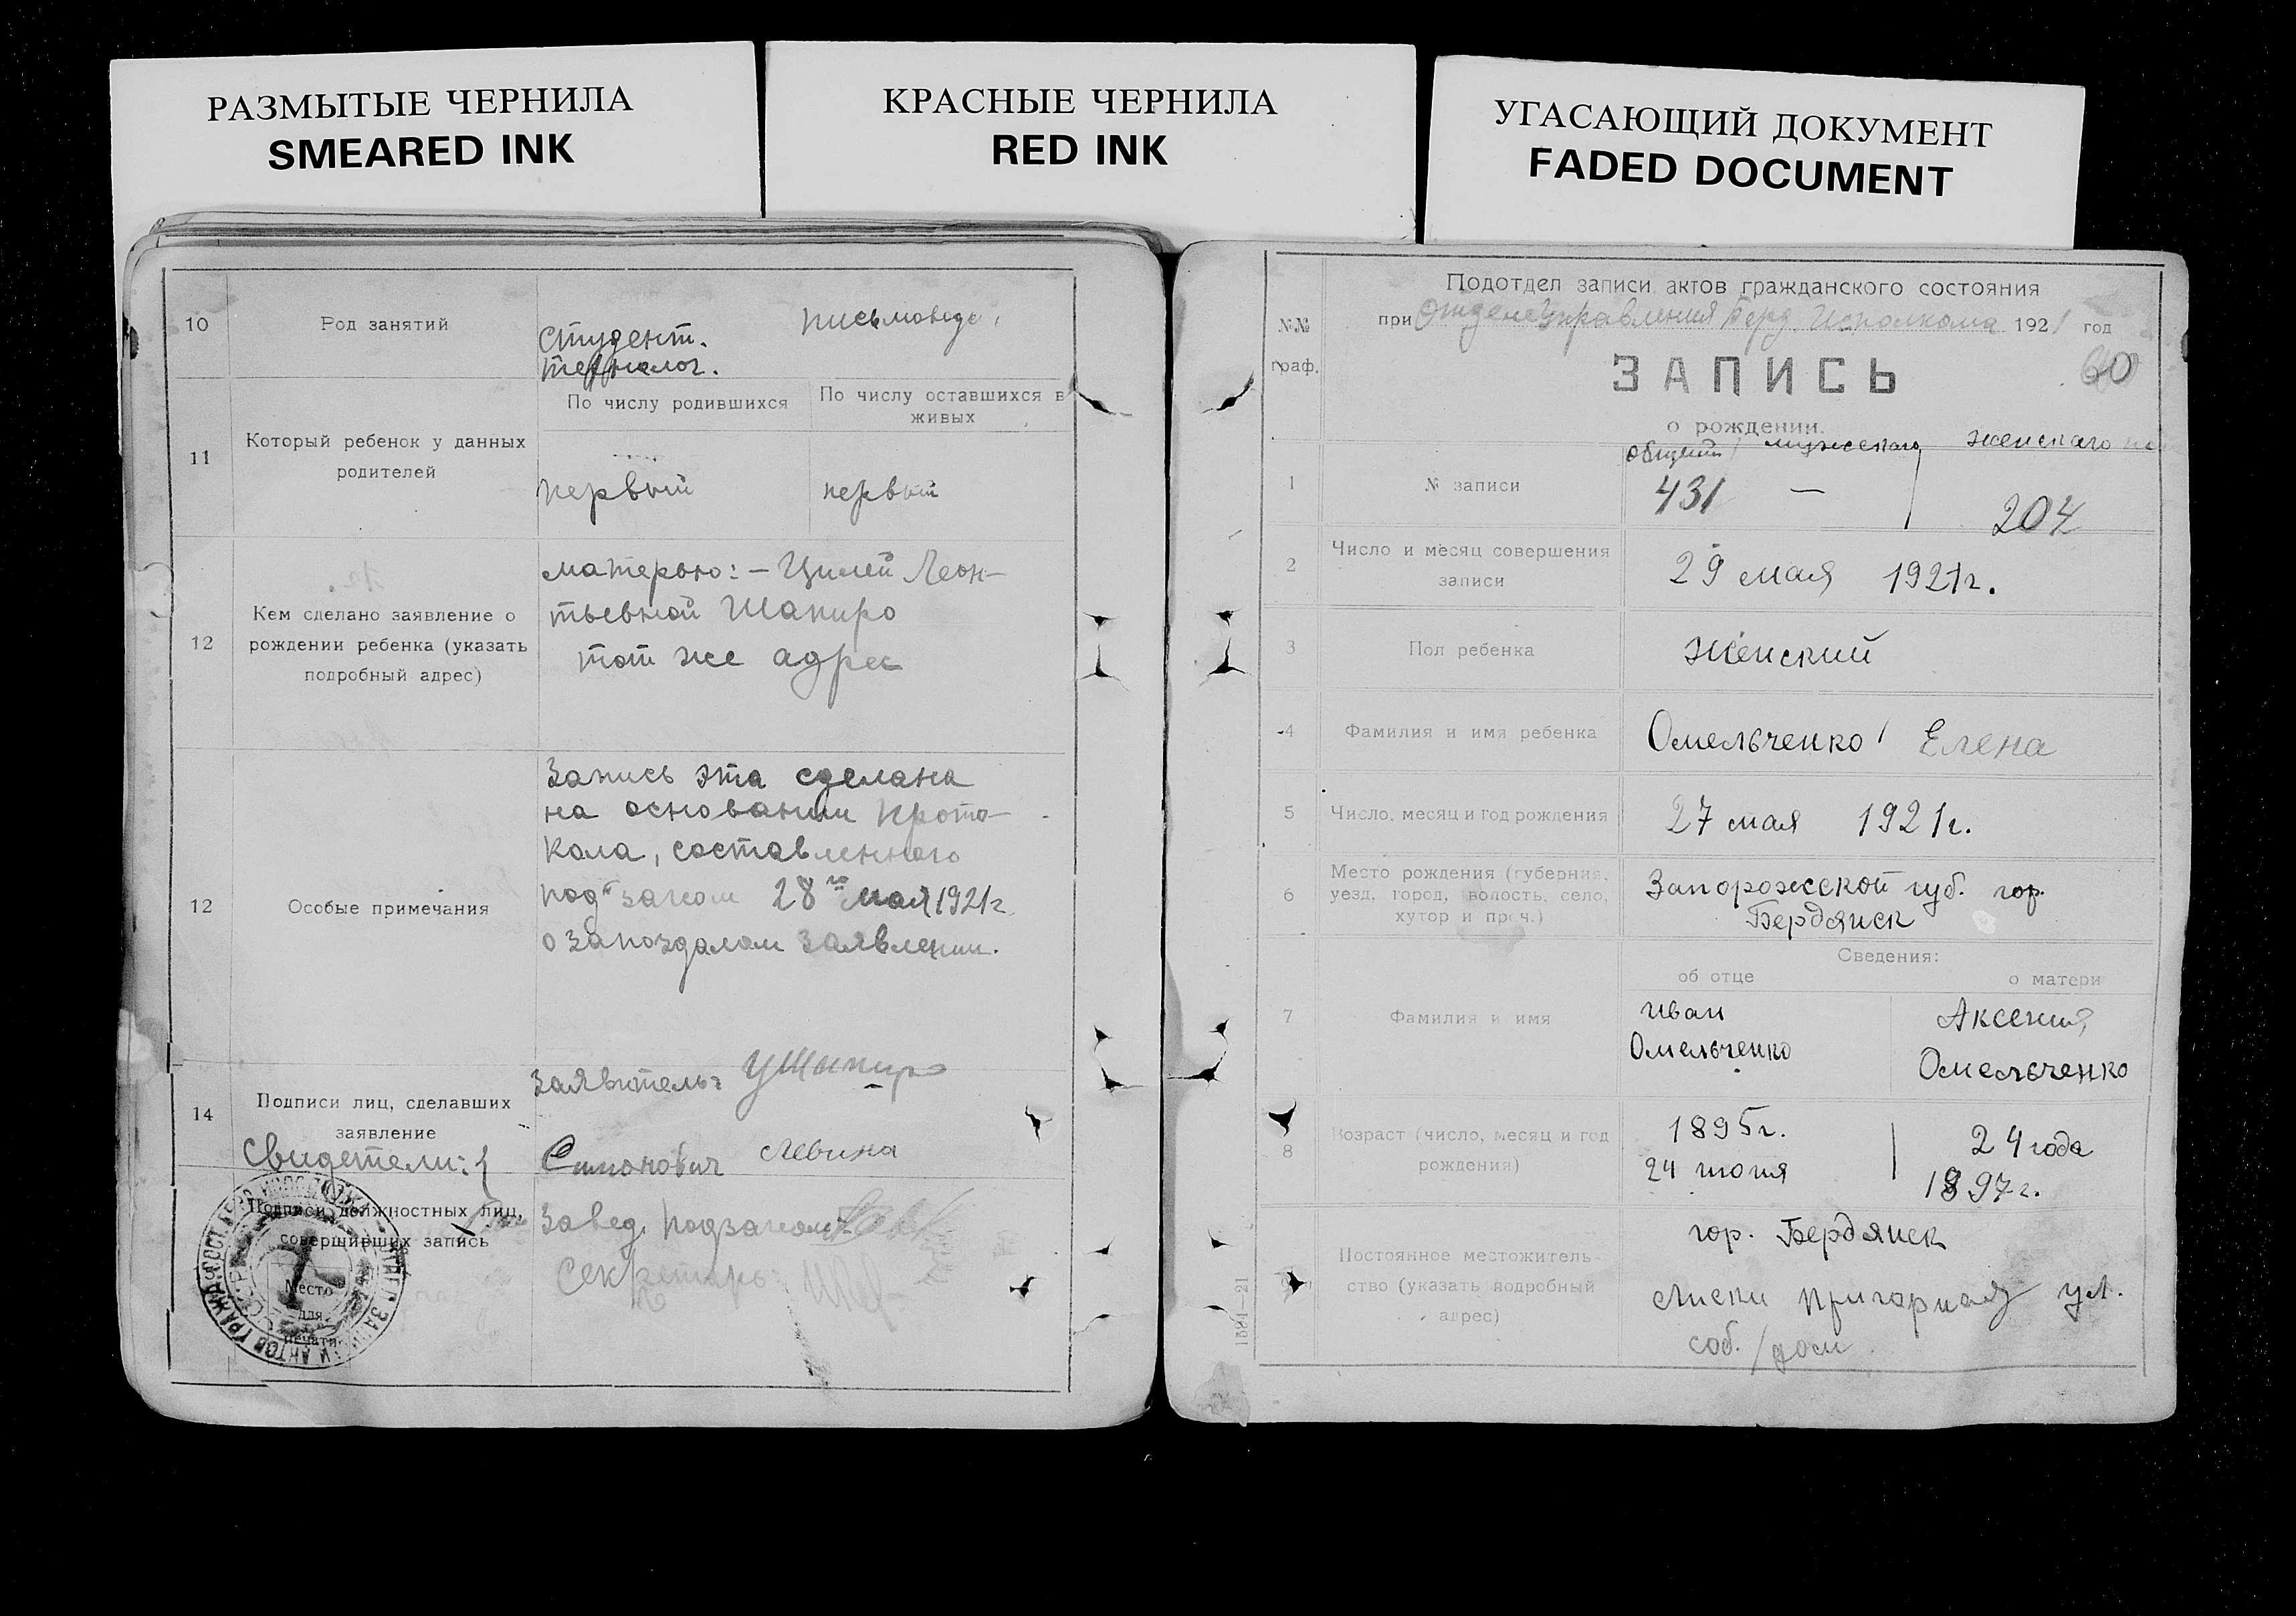 РАЗМЫТЫЕ ЧЕРНИЛА
SMEARED INK
КРАСНЫЕ ЧЕРНИЛА
RED INK
УГАСАЮЩИЙ ДОКУМЕНТ
FADED DOCUMENT
10
Род занятий
студент.
технолог.
письмовод
11
Который ребенок у данных
родителей
По числу родившихся
По числу оставшихся в
живых
первый
первый
12
Кем сделано заявление о
рождении ребенка (указать
подробный адрес)
матерью: – Цилей Леон–
тьевной Шапиро
тот же адрес
12
Особые примечания
Запись эта сделана
на основании прото–
кола, составленного
под загсом 28 го мая 1921 г
о запоздалом заявлении.
14
Подписи лиц, сделавших
заявление
Свидетели:
заявитель:
Симонович Левина
Подписи должностных лиц,
совершивших запись
Завед. подзагсом
Секретарь:
Место
для
печати
№№
граф.
Подотдел записи актов гражданского состояния
при Отделе Управления Берд. Исполкома 1921 год
ЗАПИСЬ
60
о рождении.
общий мужского женскаго
1
№ записи
431 — 204
2
Число и месяц совершения
записи
29 мая 1921 г.
3
Пол ребенка
женский
4
Фамилия и имя ребенка
Омельченко Елена
5
Число, месяц и год рождения
27 мая 1921 г.
6
Место рождения (губерния,
уезд, город, волость, село,
хутор и проч.)
Запорожской губ. гор.
Бердянск
Сведения:
об отце
о матери
7
Фамилия и имя
Иван
Омельченко
Аксения
Омельченко
8
Возраст (число, месяц и год
рождения)
1895 г.
24 июня
24 года
1897 г.
Постоянное местожитель-
ство (указать подробный
адрес)
гор. Бердянск
Лиски ул.
соб. / дом
1391—21